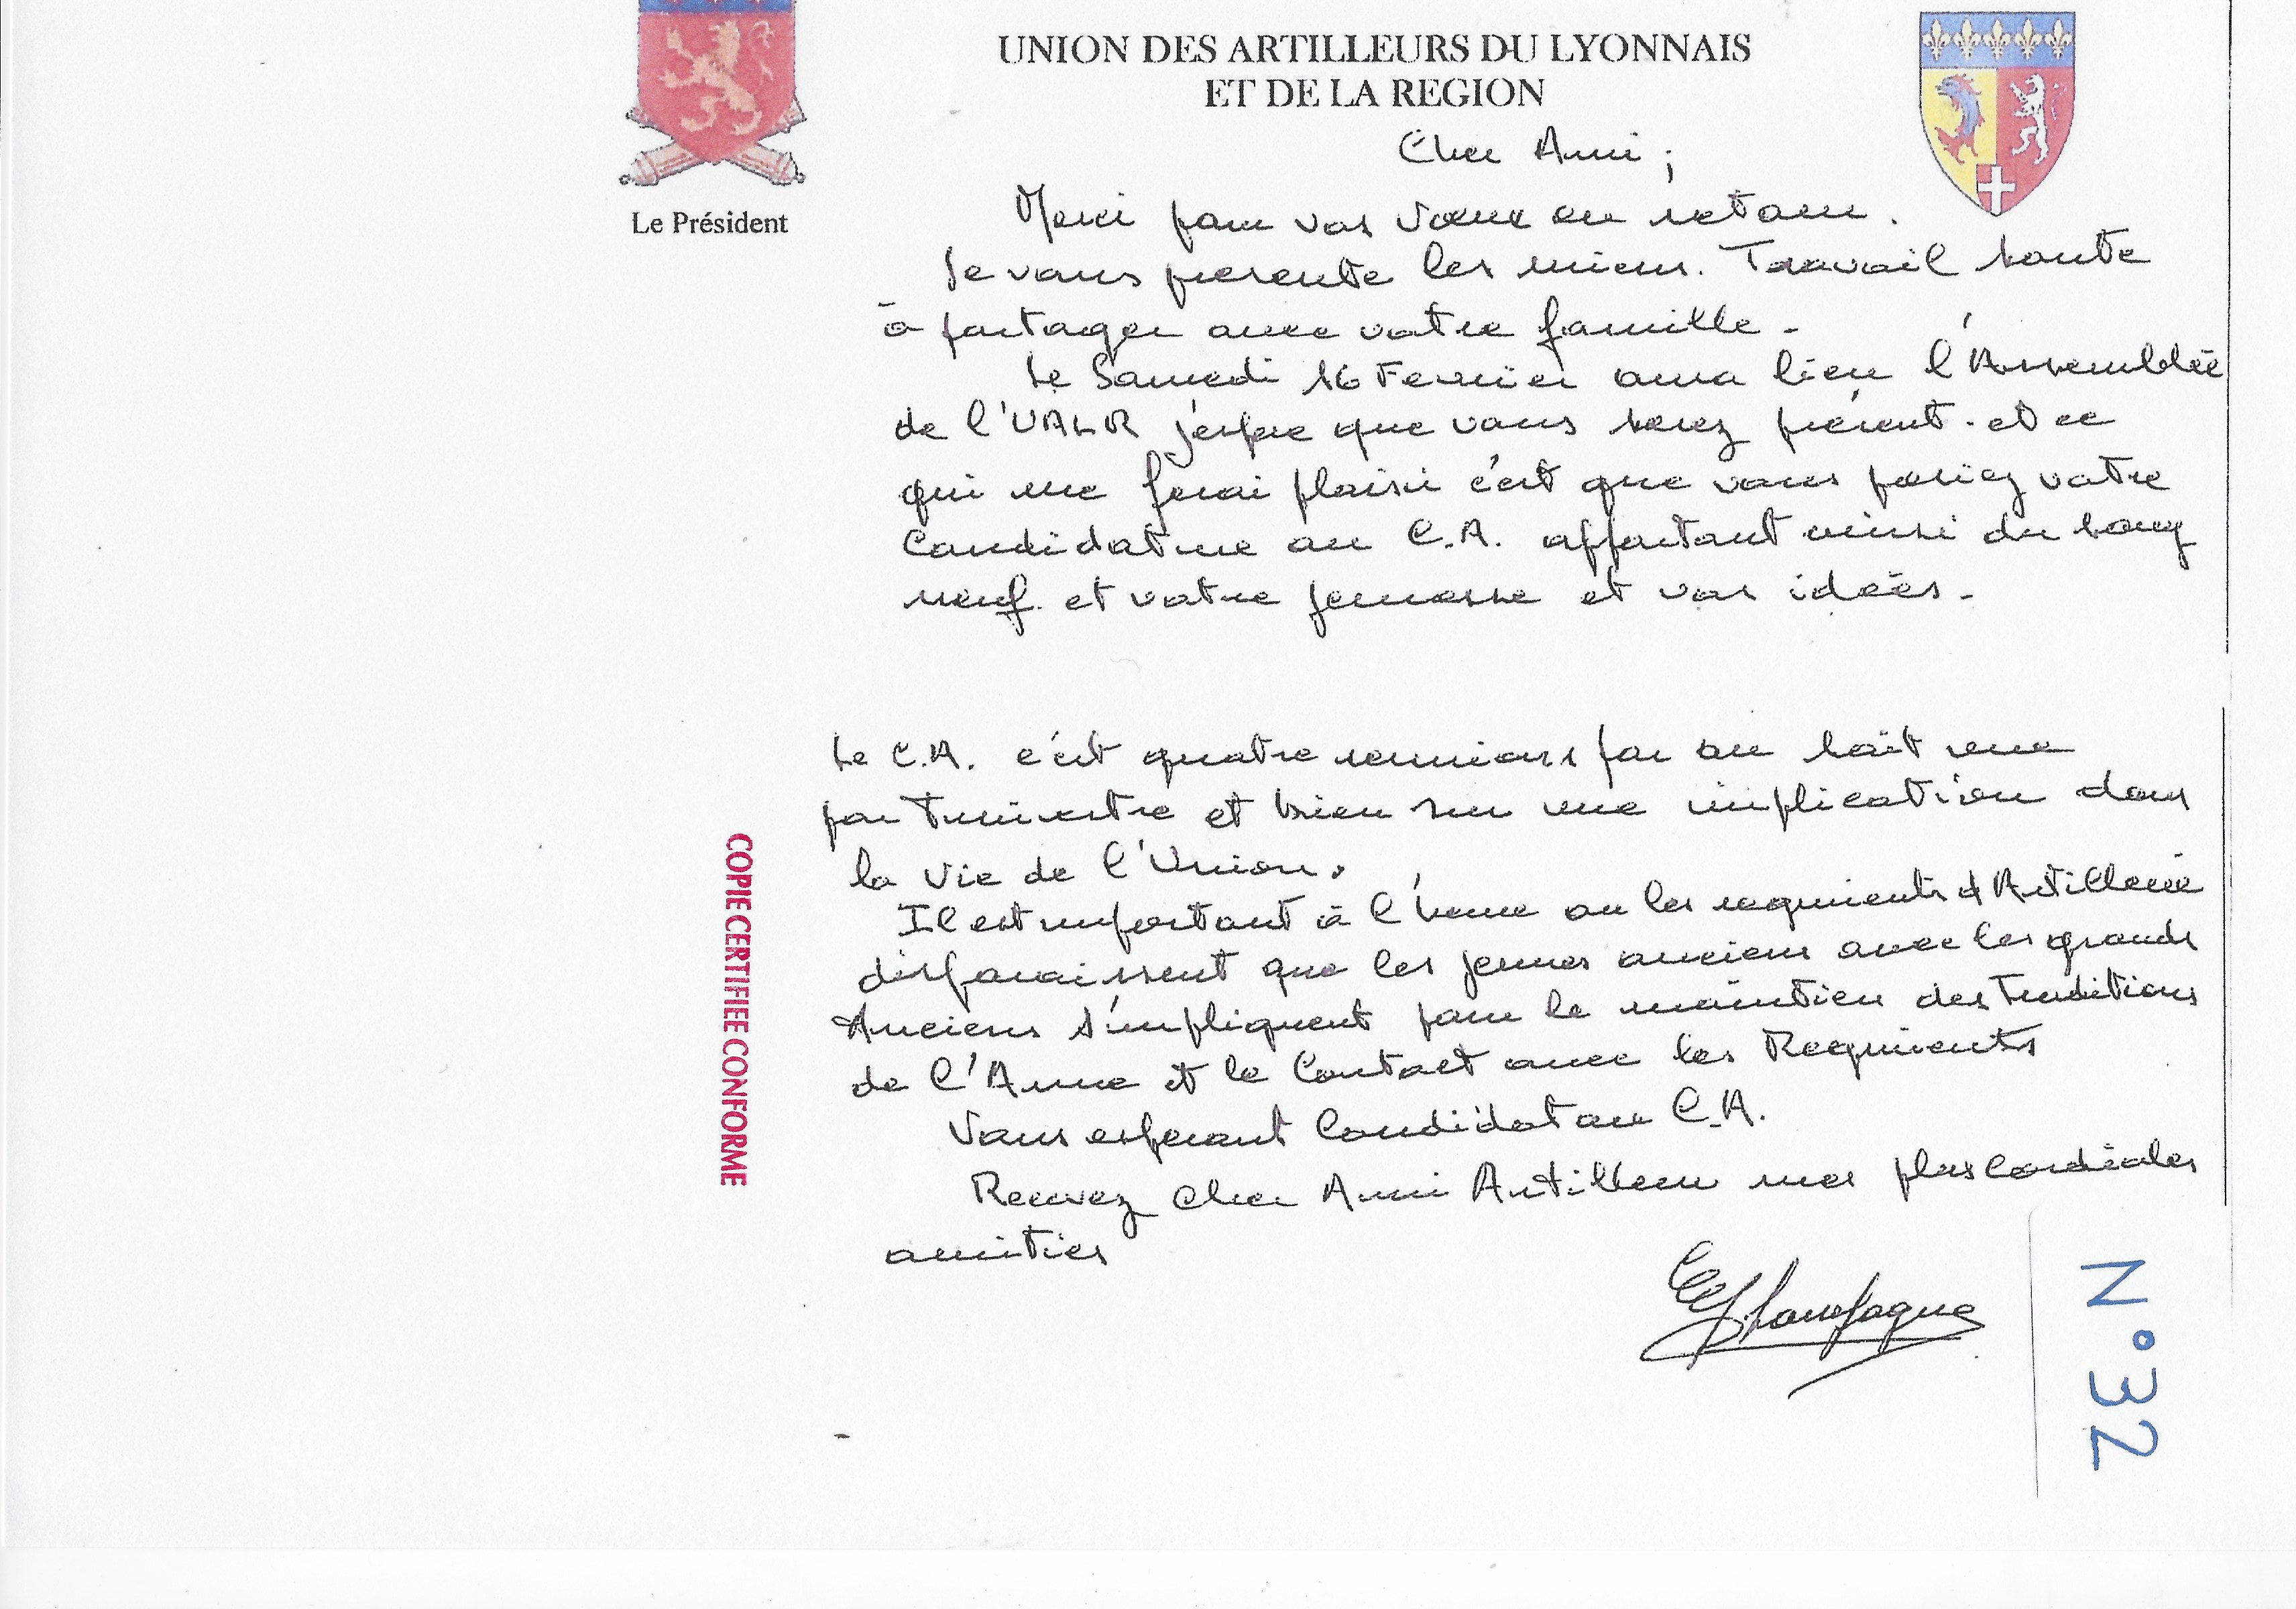 UNION DES ARTILLEURS DU LYONNAIS
ET DE LA REGION
Le Président
Cher Ami ;
Merci pour vos vœux en retour.
Je vous presente les miens. Travail santé
à partager avec votre famille.
Le Samedi 16 Fevrier aura lieu l'Assemblée
de l'UALR j'espere que vous serez présent. et ce
qui me ferai plaisir c'est que vous posiez votre
Candidature au C.A. apportant ainsi du sang
neuf. et votre jeunesse et vos idées.
Le C.A. c'est quatre reunions par an soit une
par Trimestre et bien sur une implication dans
la Vie de l'Union.
Il est important à l'heure ou les regiments d'Artillerie
disparaissent que les jeunes anciens avec les grands
Anciens s'impliquent pour le maintien des Traditions
de l'Arme et le Contact avec les Regiments
Vous esperant Candidat au C.A.
Recevez Cher Ami Artilleur mes plus Cordiales
amitiés
COPIE CERTIFIEE CONFORME
N°32